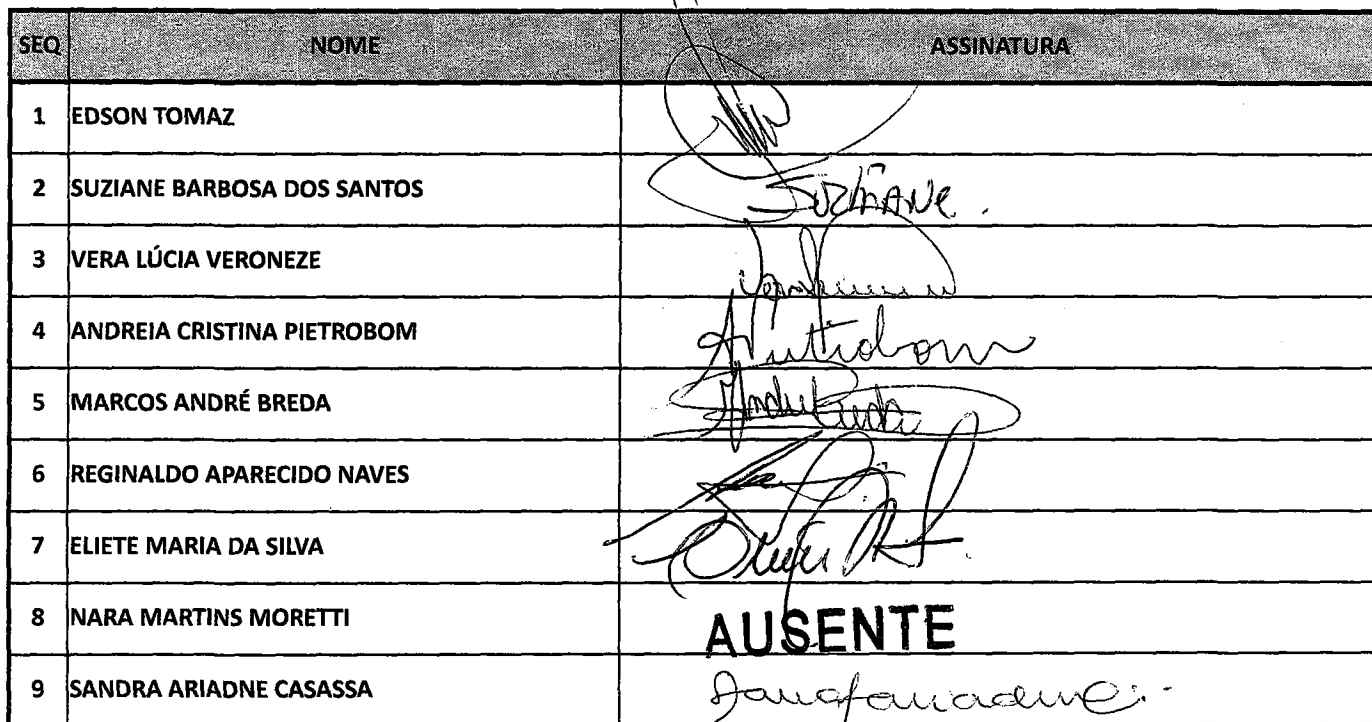 SEQ NOME ASSINATURA
1 EDSON TOMAZ
2 SUZIANE BARBOSA DOS SANTOS Suziane.
3 VERA LÚCIA VERONEZE
4 ANDREIA CRISTINA PIETROBOM APietrobom
5 MARCOS ANDRÉ BREDA
6 REGINALDO APARECIDO NAVES
7 ELIETE MARIA DA SILVA
8 NARA MARTINS MORETTI AUSENTE
9 SANDRA ARIADNE CASASSA